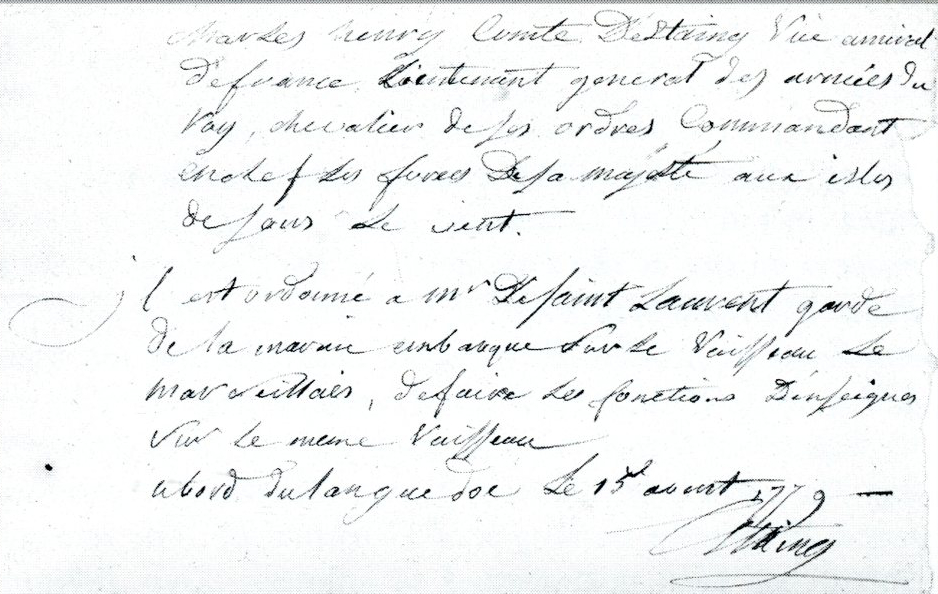 Charles henry Comte D'Estaing Vice amiral
de france, Lieutenant general des armées du
Roy, chevalier de ses ordres Commandant
en chef les forces De sa majesté aux isles
de sous le vent.
Il est ordonné a Mr De saint Laurent garde
de la marine embarque sur le Vaisseau le
Marseillais, de faire les fonctions D'enseignes
sur le meme Vaisseau
abord du languedoc le 15 aoust 1779 —
Estaing